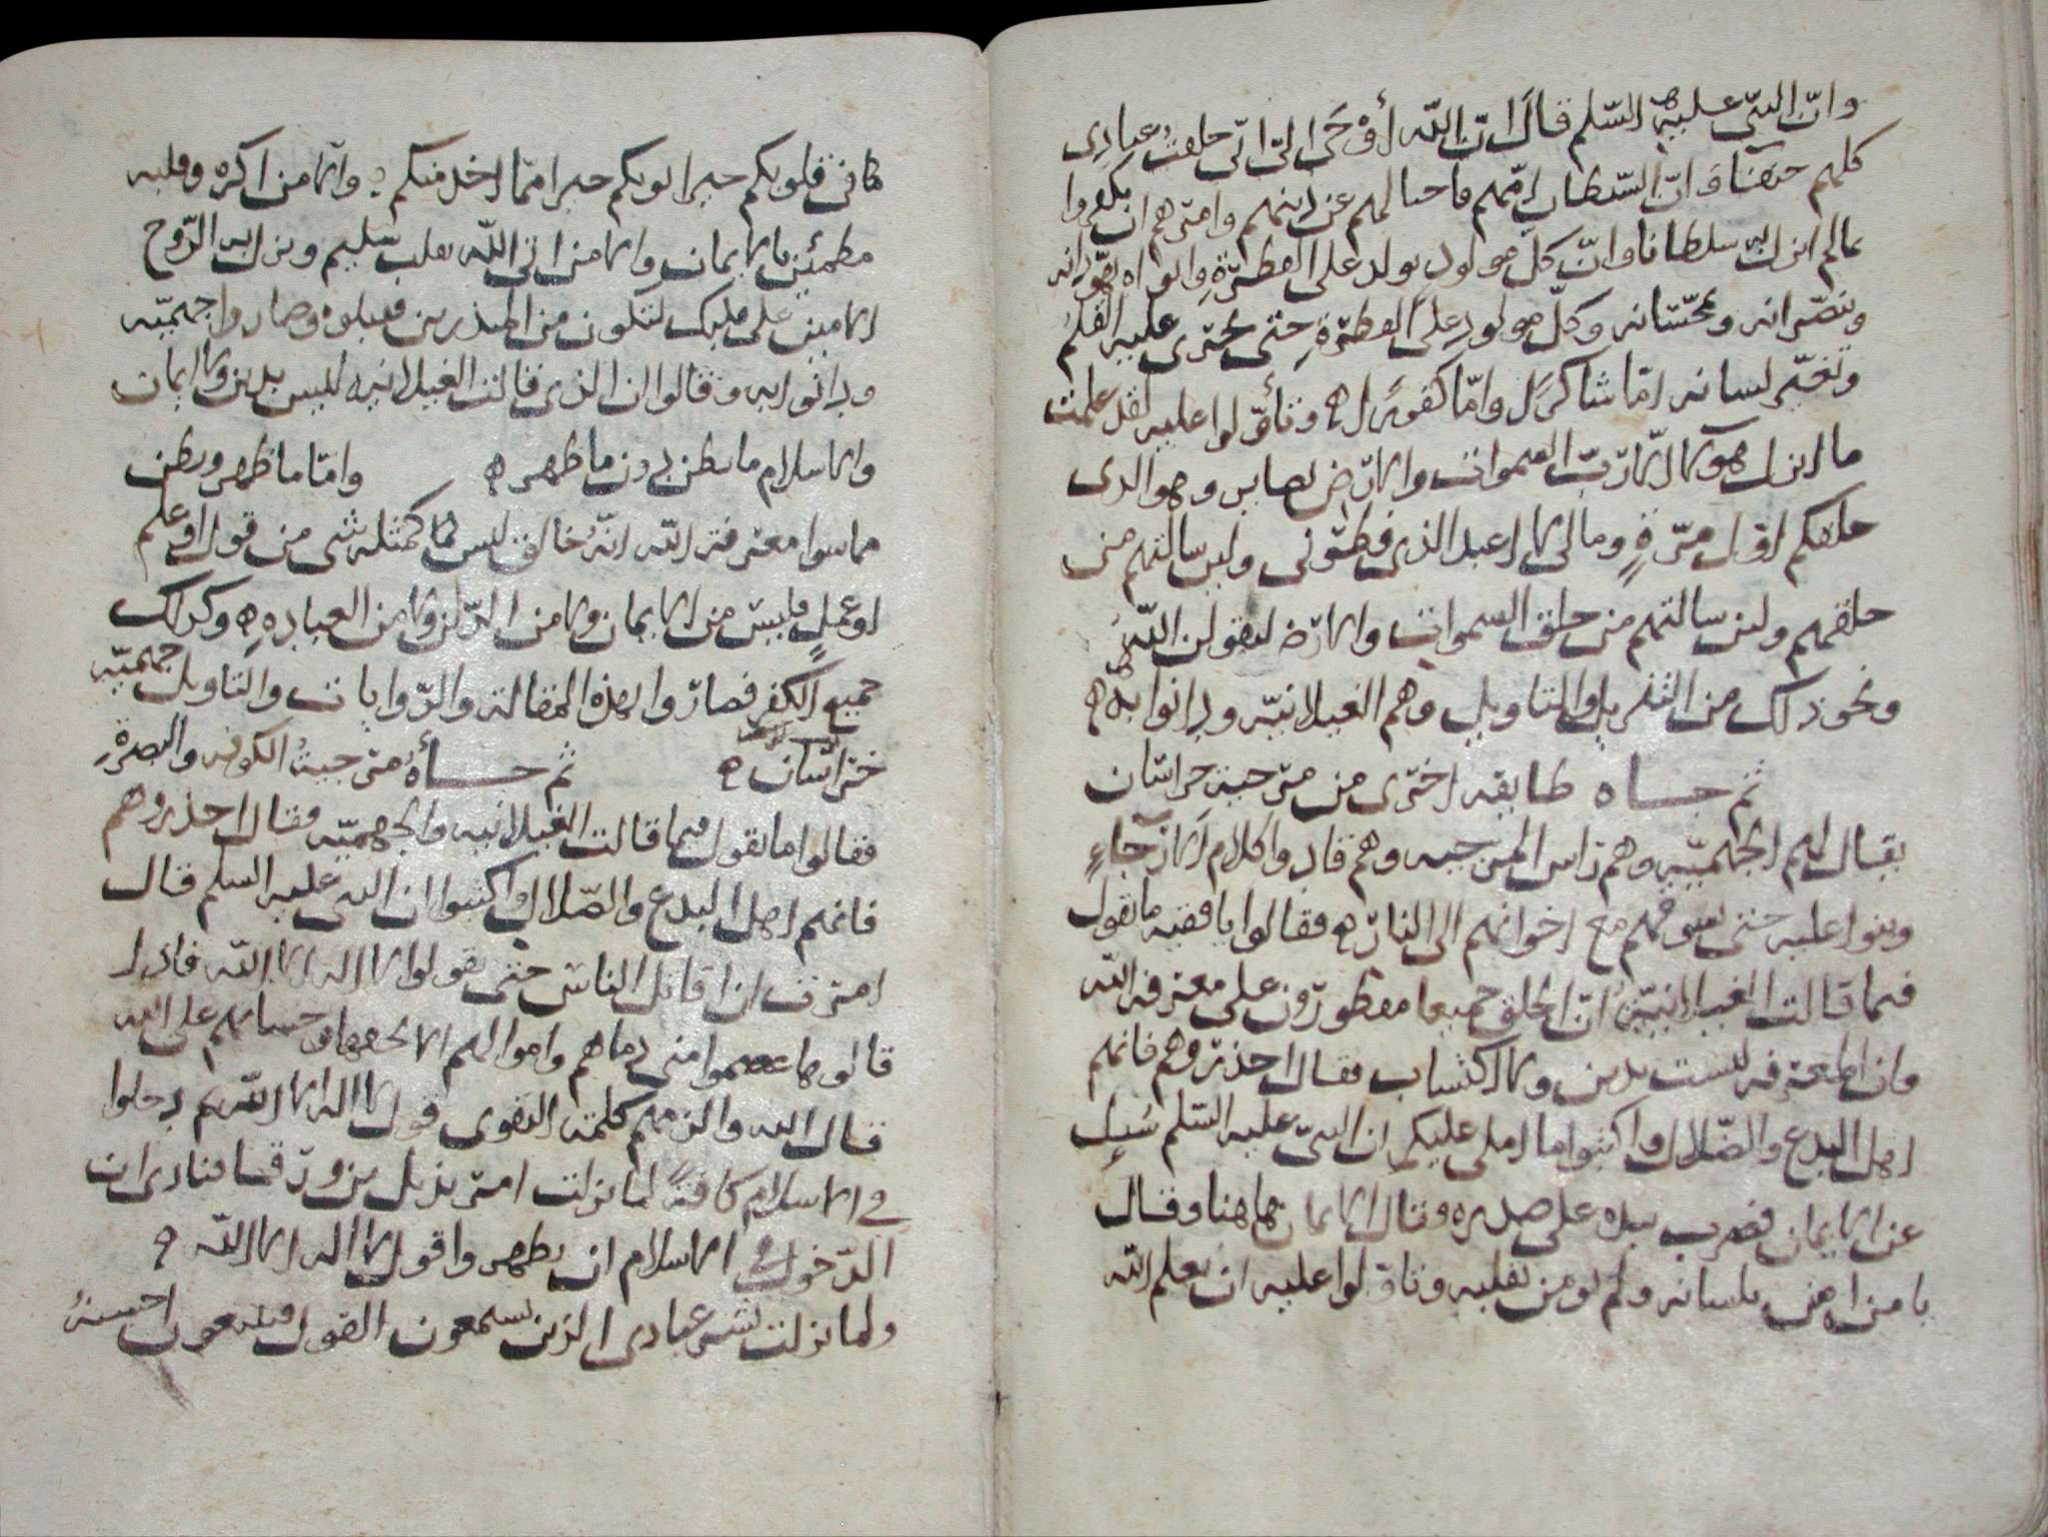 وانّ النبىّ عليه السّلم قال انّ اللّه أوْحَى الىّ انّى خلقت عبادى
كلهم حنفآء وانّ الشيطان امّهم فاحتالهم عن دينهم وامرهم ان يكفروا
مالم انزل به سلطانا وانّ كلّ مولود يولد على الفطرةِ وابواه يهوّدانه
وينصّرانه ويمجّسانه وكلّ مولود على الفطرةِ حتى يجرى عليه القلمُ
ويعبّر لسانه امّا شاكرًا وامّا كفورًا ه وتأوّلوا عليه لقد علمت
ما انزل هولا الا ربّ السموات والارض بصاير وهو الذى
خلقكم اوّل مرّةٍ ومالى لا اعبد الذى فطرنى ولين سالتهم من
خلقهم ولين سالتهم من خلق السموات والارض ليقولن اللّه
ونحو ذلك من التنزيل والتاويل وهم الغيلانيّه ودانوا به ه
ثم جاه طايفه اخرى من مرجية خراسان
يقال لهم الجهميّه وهم راس المرجيه وهم قادوا كلام الارجاءِ
وبنوا عليه حتى يسوقهم مع اخوانهم الى النار ه فقالوا يا فقيه ما تقول
فيما قالت الغيلانيّة انّ الخلق جميعا مفطورون على معرفة اللّه
وان المعرفه ليست بدين ولا اكتساب فقال احذروهم فانهم
اهل البدع والضّلال واكتبوا ما املى عليكم ان النبىّ عليه السّلم سُيِل
عن الايمان فضرب بيده على صدره وقال الايمان هاهنا وقال
يا من امن بلسانه ولم يومن بقلبه وتاوّلوا عليه ان يعلم اللّه
كان فى قلوبكم خيرا يوتكم خيرا ممّا اخذ منكم ه والا من اكره وقلبه
مطمئن بالايمان والا من اتى اللّه بقلب سليم ونزل به الرّوح
الامين على قلبك لتكون من المنذرين فقبلوه وصاروا جهميّه
ودانوا به وقالوا ان الذى قالت الغيلانيه ليس بدين ولا ايمان
والاسلام ما بطن دون ما ظهر ه وامّا ما ظهر وبطن
مما سوا معرفة اللّه انّه خالق ليس كمثله شى من قول او علم
او عملٍ فليس من الايمان ولا من الدّين ولا من العباده ه وكذلك
جميع الكفر فصاروا بهذه المقالة والرّوايات والتاويل جهميّه
خراسان ه ثم جاأهُ مرجيةُ الكوفه والبصرةِ
فقالوا ما تقول فيما قالت الغيلانيه والجهميّه فقال احذروهم
فانهم اهل البدع والضّلال واكتبوا ان النبى عليه السلم قال
امرت ان اقاتل الناس حتى يقولوا لا اله الا اللّه فاذا
قالوها عصموا منى دماهم واموالهم الا بحقها وحسابهم على اللّه
قال اللّه والزمهم كلمة التقوى قول لا اله الا اللّه ثم دخلوا
فى الاسلام كافةً لما نزلت امر بديل بن ورقا فنادى ان
الدّخول فى الاسلام ان يظهر واقول لا اله الا اللّه ه
ولما نزلت فبشر عبادى الذين يستمعون القول فيتبعون احسنهُ